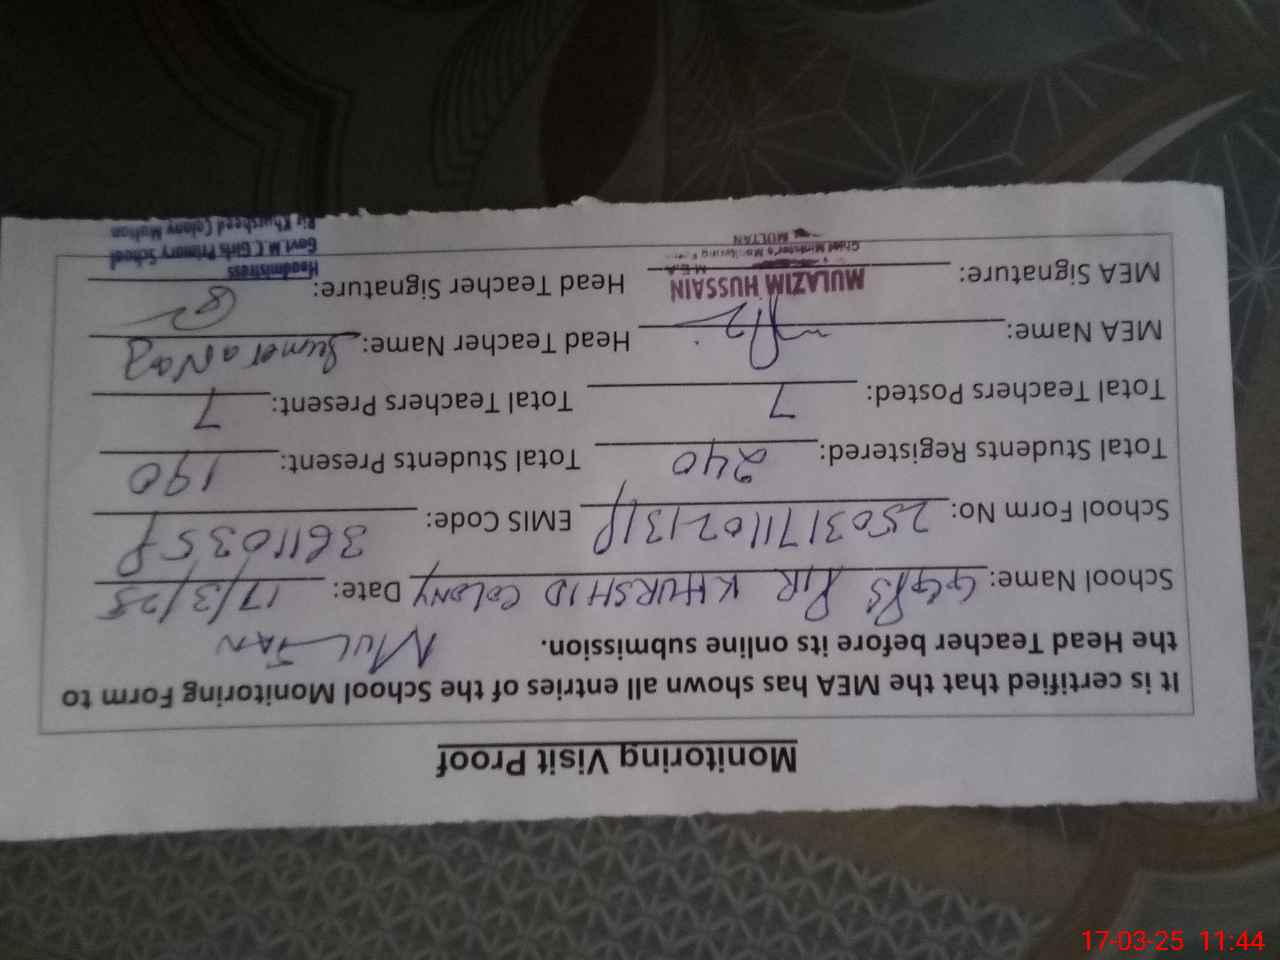 Monitoring Visit Proof
It is certified that the MEA has shown all entries of the School Monitoring Form to
the Head Teacher before its online submission. MULTAN
School Name: GGPS PIR KHURSHID COLONY Date: 17/3/25
School Form No: EMIS Code:
Total Students Registered: 240 Total Students Present: 190
Total Teachers Posted: 7 Total Teachers Present: 7
MEA Name: Head Teacher Name: Sumera Naz
MEA Signature: Head Teacher Signature:
MULAZIM HUSSAIN
M.E.A
Chief Minister's Monitoring
MULTAN
Headmistress
Govt M.C Girls Primary School
Pir Khursheed Colony Multan
17-03-25 11:44